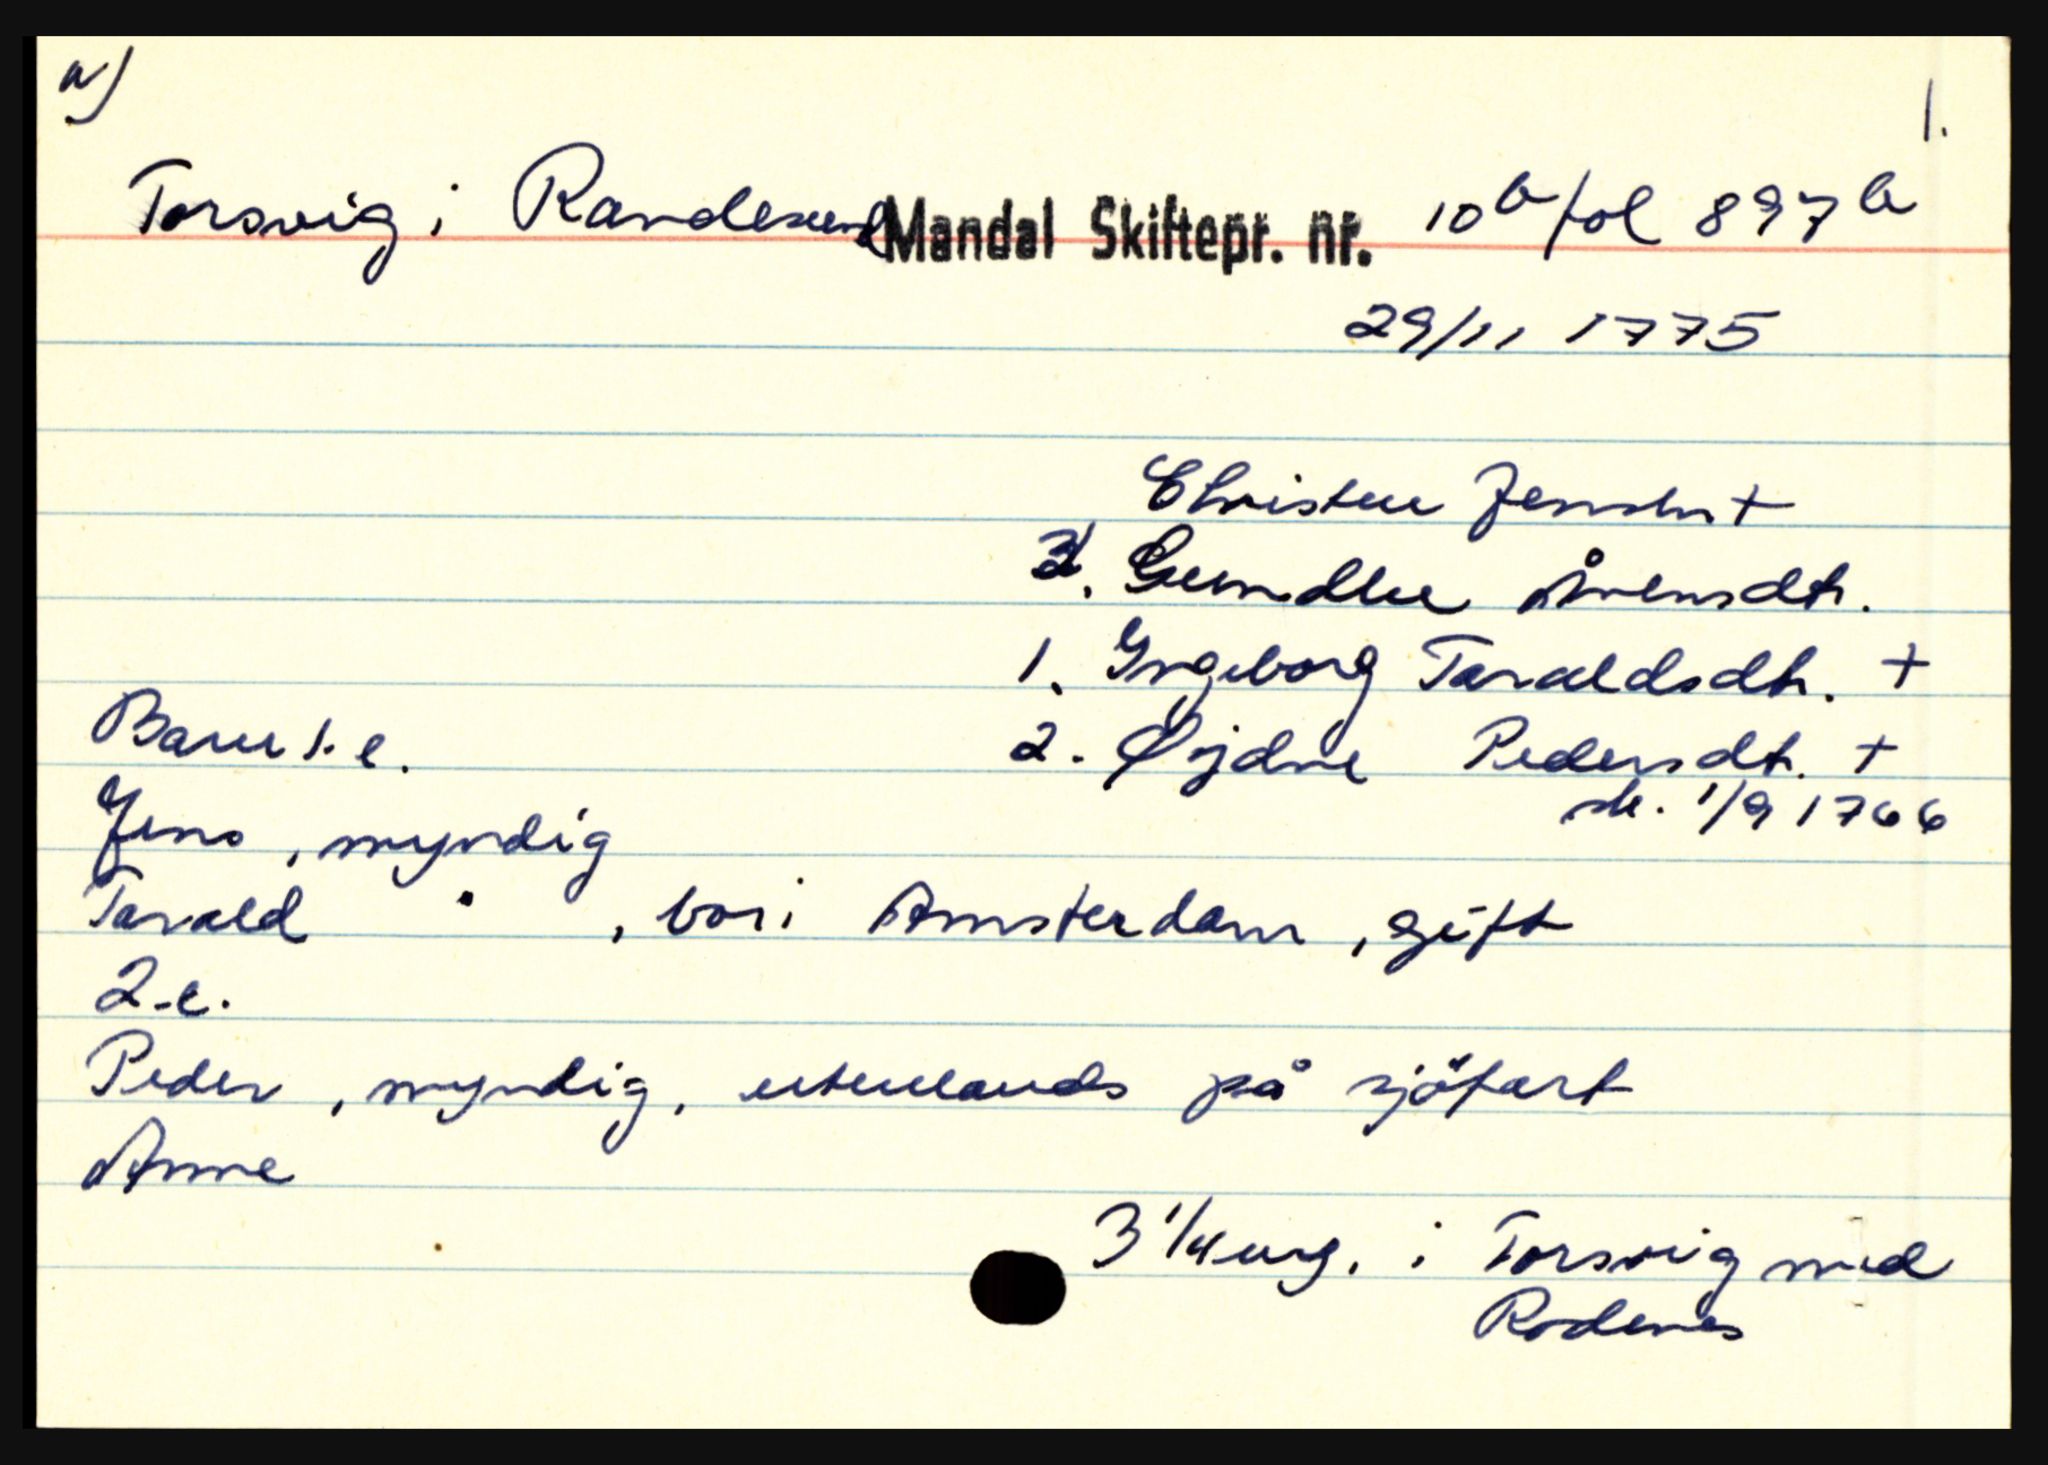 a) 1.
Torsvig i Randesund Mandal Skiftepr. nr. 10b fol 897b
29/11 1775
Christen Jensen +
3. Gundbor Årensdtr.
1. Ingeborg Taraldsdtr. +
Barn 1. e. 2. Øydne Pedersdtr. +
sk. 1/9 1766
Jens, myndig
Tarald " , bor i Amsterdam, gift
2. e.
Peder, myndig, utenlands på sjöfart
Anne
3 1/4 eng. i Torsvig med
Rodenes